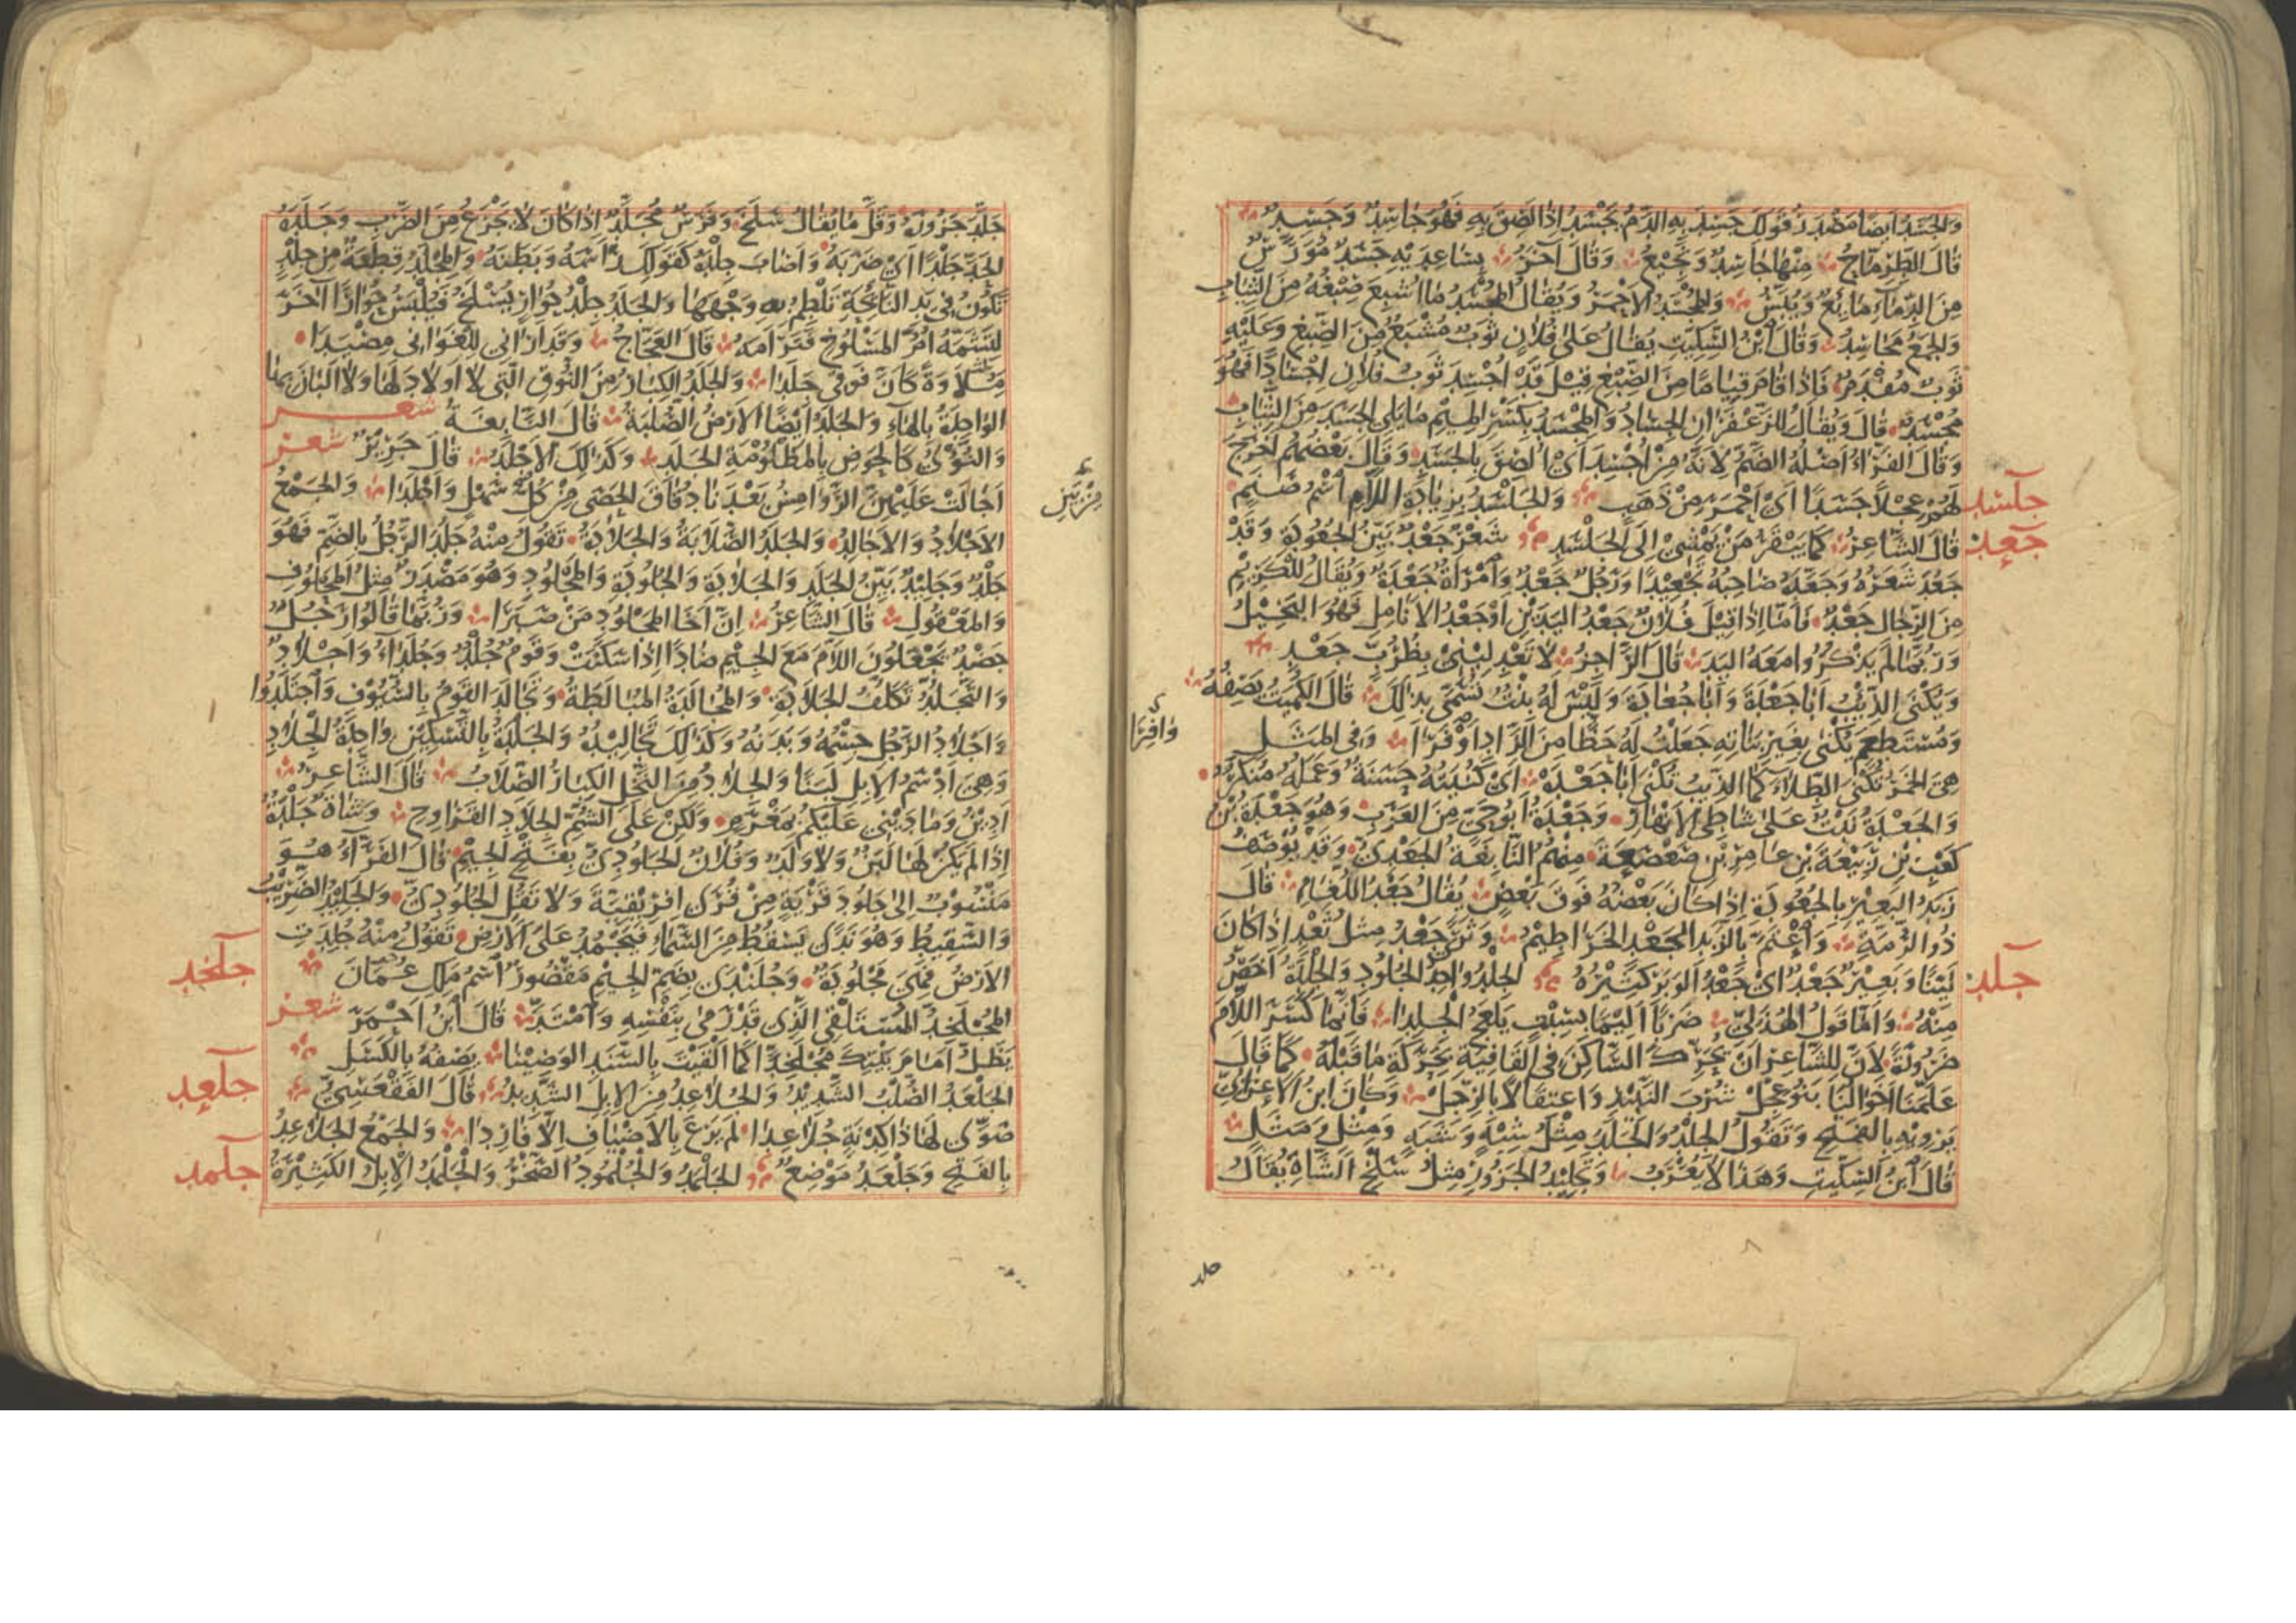 والجسد ايضا مصدر قولك جسد به الدم يجسد اذا لصق به فهو جاسد وجسد
قال الطرماح منها جاسد ونجيع وقال آخر بساعديه جسد مورس
من الدماء مائع ويبس والمجسد الاحمر ويقال المجسد ما اشبع صبغه من الثياب
والجمع مجاسد وقال ابن السكيت يقال على فلان ثوب مشبع من الصبغ وعليه
ثوب مفدم فاذا قام قياما من الصبغ قيل قد اجسد ثوب فلان اجسادا فهو
مجسد قال ويقال للزعفران الجساد والمجسد بكسر الميم ما يلي الجسد من الثياب
وقال الفراء اصله الضم لانه من اجسد اي الصق بالجسد وقال بعضهم اخرج
لهم عجلا جسدا اي احمر من ذهب والجلسد بزيادة اللام اسم صنم
جلسد
قال الشاعر كما بيقر من يمشي الى الجلسد شعر جعد بين الجعودة وقد
جعد
جعد شعره وجعده صاحبه تجعيدا ورجل جعد وامرأة جعدة ويقال للكريم
من الرجال جعد فاما اذا قيل فلان جعد اليدين او جعد الانامل فهو البخيل
وربما لم يذكروا معه اليد قال الراجز لا تعدليني بظرب جعد
ويكنى الذئب ابا جعدة وابا جعادة وليس له بنت تسمى بذلك قال الكميت يصفه
ومستطعم يكنى بغير بناته جعلت له حظا من الزاد اوفرا وفي المثل
وافرا
هي الخمر تكنى الطلاء كما الذيب تكنى ابا جعدة اي كنيته حسنة وعمله منكر
والجعدة نبت على شاطئ الانهار وجعدة ابو حي من العرب وهو جعدة بن
كعب بن ربيعة بن عامر بن صعصعة منهم النابغة الجعدي وقد يوصف
زبد البعير بالجعودة اذا كان بعضه فوق بعض يقال جعد اللغام قال
ذو الرمة واعتم بالزبد الجعد الخراطيم وثرى جعد مثل ثعد اذا كان
لينا وبعير جعد اي جعد الوبر كثيره الجلد واحد الجلود والجلدة اخص
جلد
منه واما قول الهذلي ضربا اليما بسبت يلعج الجلدا فانما كسر اللام
ضرورة لان للشاعر ان يحرك الساكن في القافية بحركة ما قبله كما قال
علمنا اخوالنا بنو عجل شرب النبيذ واعتقالا بالرجل وكان ابن الاعرابي
يرويه بالفتح وتقول الجلد والجلد مثل شبه وشبه ومثل ومثل
قال ابن السكيت وهذا لا يعرب وتجليد الجزور مثل سلخ الشاة يقال
جلد
جلد جزوره وقل ما يقال سلخ وفرس مجلد اذا كان لا يجزع من الضرب وجلده
الحد جلدا اي ضربه واصاب جلده كقولك رأسه وبطنه والمجلد قطعة من جلد
تكون في يد النائحة تلطم به وجهها والجلد جلد حوار يسلخ فيلبس حوارا آخر
لتشمه ام المسلوخ فترأمه قال العجاج وقد اراني للغواني مصيدا
ملاوة كان فوقي جلدا والجلد الكبار من النوق التي لا اولاد لها ولا البان بها
الواحدة بالهاء والجلد ايضا الارض الصلبة قال النابغة شعر
والنؤي كالحوض بالمظلومة الجلد وكذلك الاجلد قال جرير شعر
اجالت عليهن الروامس بعدنا دقاق الحصى من كل سهل واجلدا والجمع
من بين
الاجلاد والاجالد والجلد الصلابة والجلادة تقول منه جلد الرجل بالضم فهو
جلد وجليد بين الجلد والجلادة والجلودة والمجلود وهو مصدر مثل المحلوف
والمعقول قال الشاعر ان اخا المجلود من صبرا وربما قالوا رجل
جضد يجعلون اللام مع الجيم ضادا اذا سكنت وقوم جلد وجلداء واجلاد
والتجلد تكلف الجلادة والمجالدة المبالطة وتجالد القوم بالسيوف واجتلدوا
واجلاد الرجل جسمه وبدنه وكذلك تجاليده والجلدة بالتسكين واحدة الجلاد
وهي ادسم الابل لبنا والجلاد من النخل الكبار الصلاب قال الشاعر
ادين وما ديني عليكم بمغرم ولكن على الشم الجلاد القراوح وشاة جلدة
اذا لم يكن لها لبن ولا ولد وفلان الجلودي بفتح الجيم قال الفراء هو
منسوب الى جلود قرية من قرى افريقية ولا تقل الجلودي والجليد الضريب
والسقيط وهو ندى يسقط من السماء فيجمد على الارض تقول منه جلدت
الارض فهي مجلودة وجلندى بضم الجيم مقصور اسم ملك عمان
جلخد
المجلخد المستلقي الذي قد رمى بنفسه وامتد قال ابن احمر شعر
يظل امام بيتك مجلخدا كما القيت بالسند الوضينا يصفه بالكسل
الجلعد الصلب الشديد والجلاعد من الابل الشديد قال الفقعسي
جلعد
صوى لها ذا كدنة جلاعدا لم يرع بالاصياف الا فاردا والجمع الجلاعد
بالفتح وجلعد موضع الجلمد والجلمود الصخر والجلمد الابل الكثيرة
جلمد